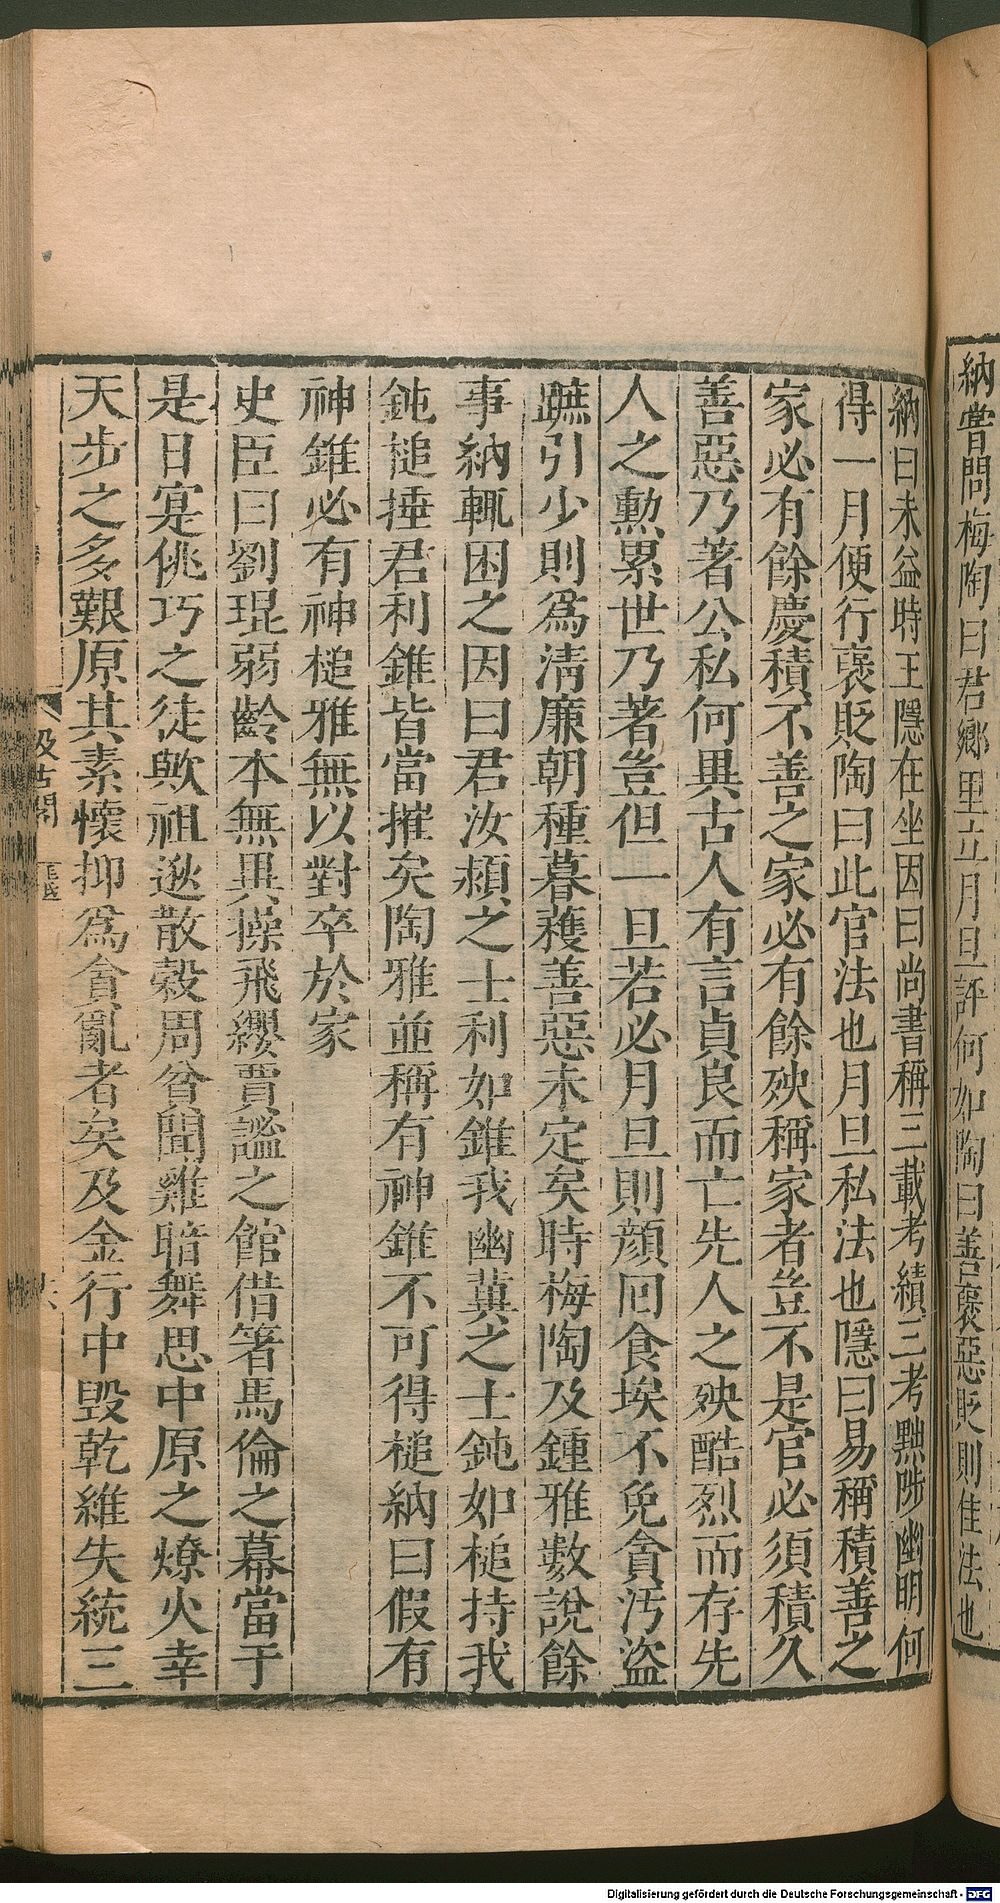 納嘗問梅陶曰君鄉里立月旦評何如陶曰善褒惡貶則佳法也
納曰未益時王隱在坐因曰尚書稱三載考績三考黜陟幽明何
得一月便行褒貶陶曰此官法也月旦私法也隱曰易稱積善之
家必有餘慶積不善之家必有餘殃稱家者豈不是官必須積久
善惡乃著公私何異古人有言貞良而亡先人之殃酷烈而存先
人之勲累世乃著豈但一旦若必月旦則顏回食埃不免貪汚盜
蹠引少則爲淸廉朝種暮穫善惡未定矣時梅陶及鍾雅數說餘
事納輒困之因曰君汝潁之士利如錐我幽冀之士鈍如槌持我
鈍槌捶君利錐皆當摧矣陶雅並稱有神錐不可得槌納曰假有
神錐必有神槌雅無以對卒於家
史臣曰劉琨弱齡本無異操飛纓賈謐之館借箸馬倫之幕當于
是日寔佻巧之徒歟祖逖散榖周貧聞雞暗舞思中原之燎火幸
天步之多艱原其素懷抑爲貪亂者矣及金行中毀乾維失統三
汲古閣
Digitalisierung gefördert durch die Deutsche Forschungsgemeinschaft - DFG